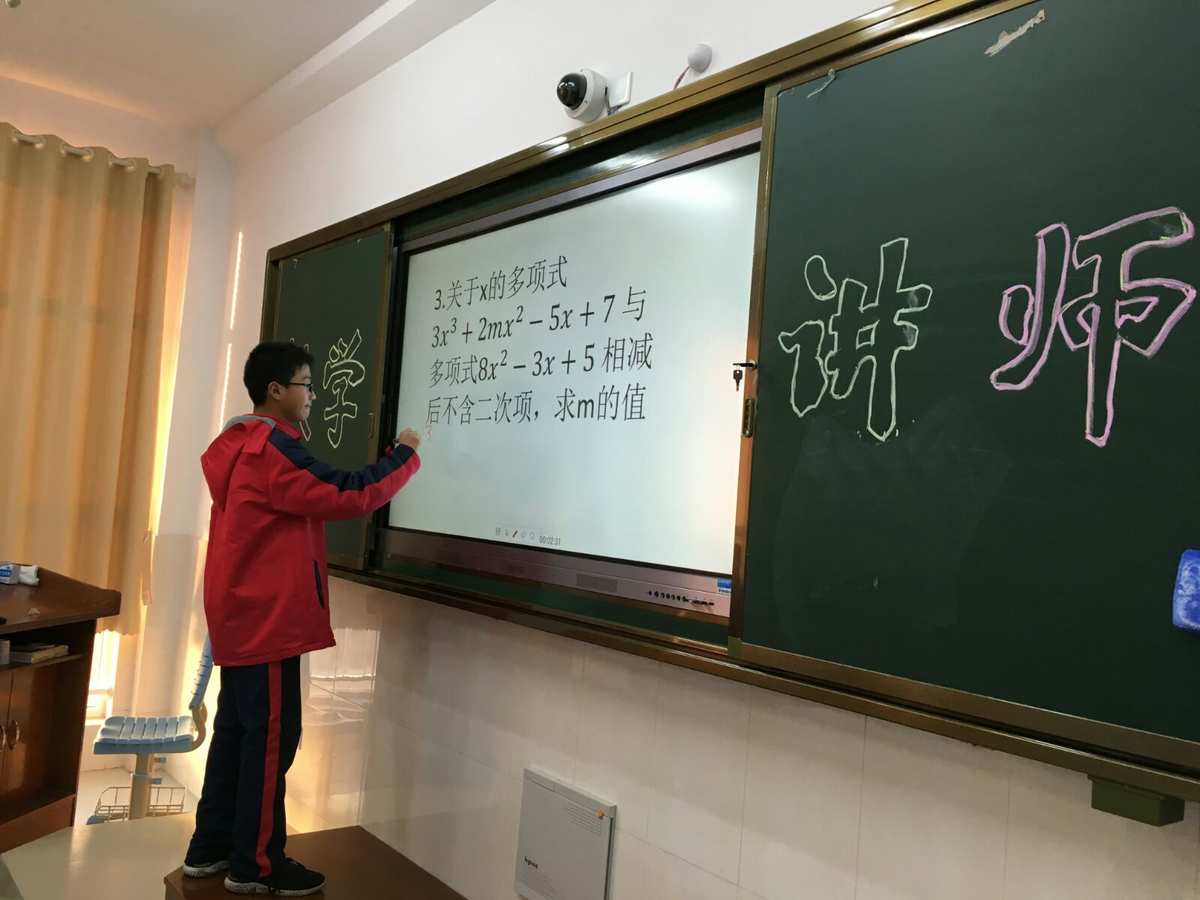 学
3.关于x的多项式
3x³+2mx²−5x+7 与
多项式8x²−3x+5 相减
后不含二次项，求m的值
00:02:31
讲师
legrand